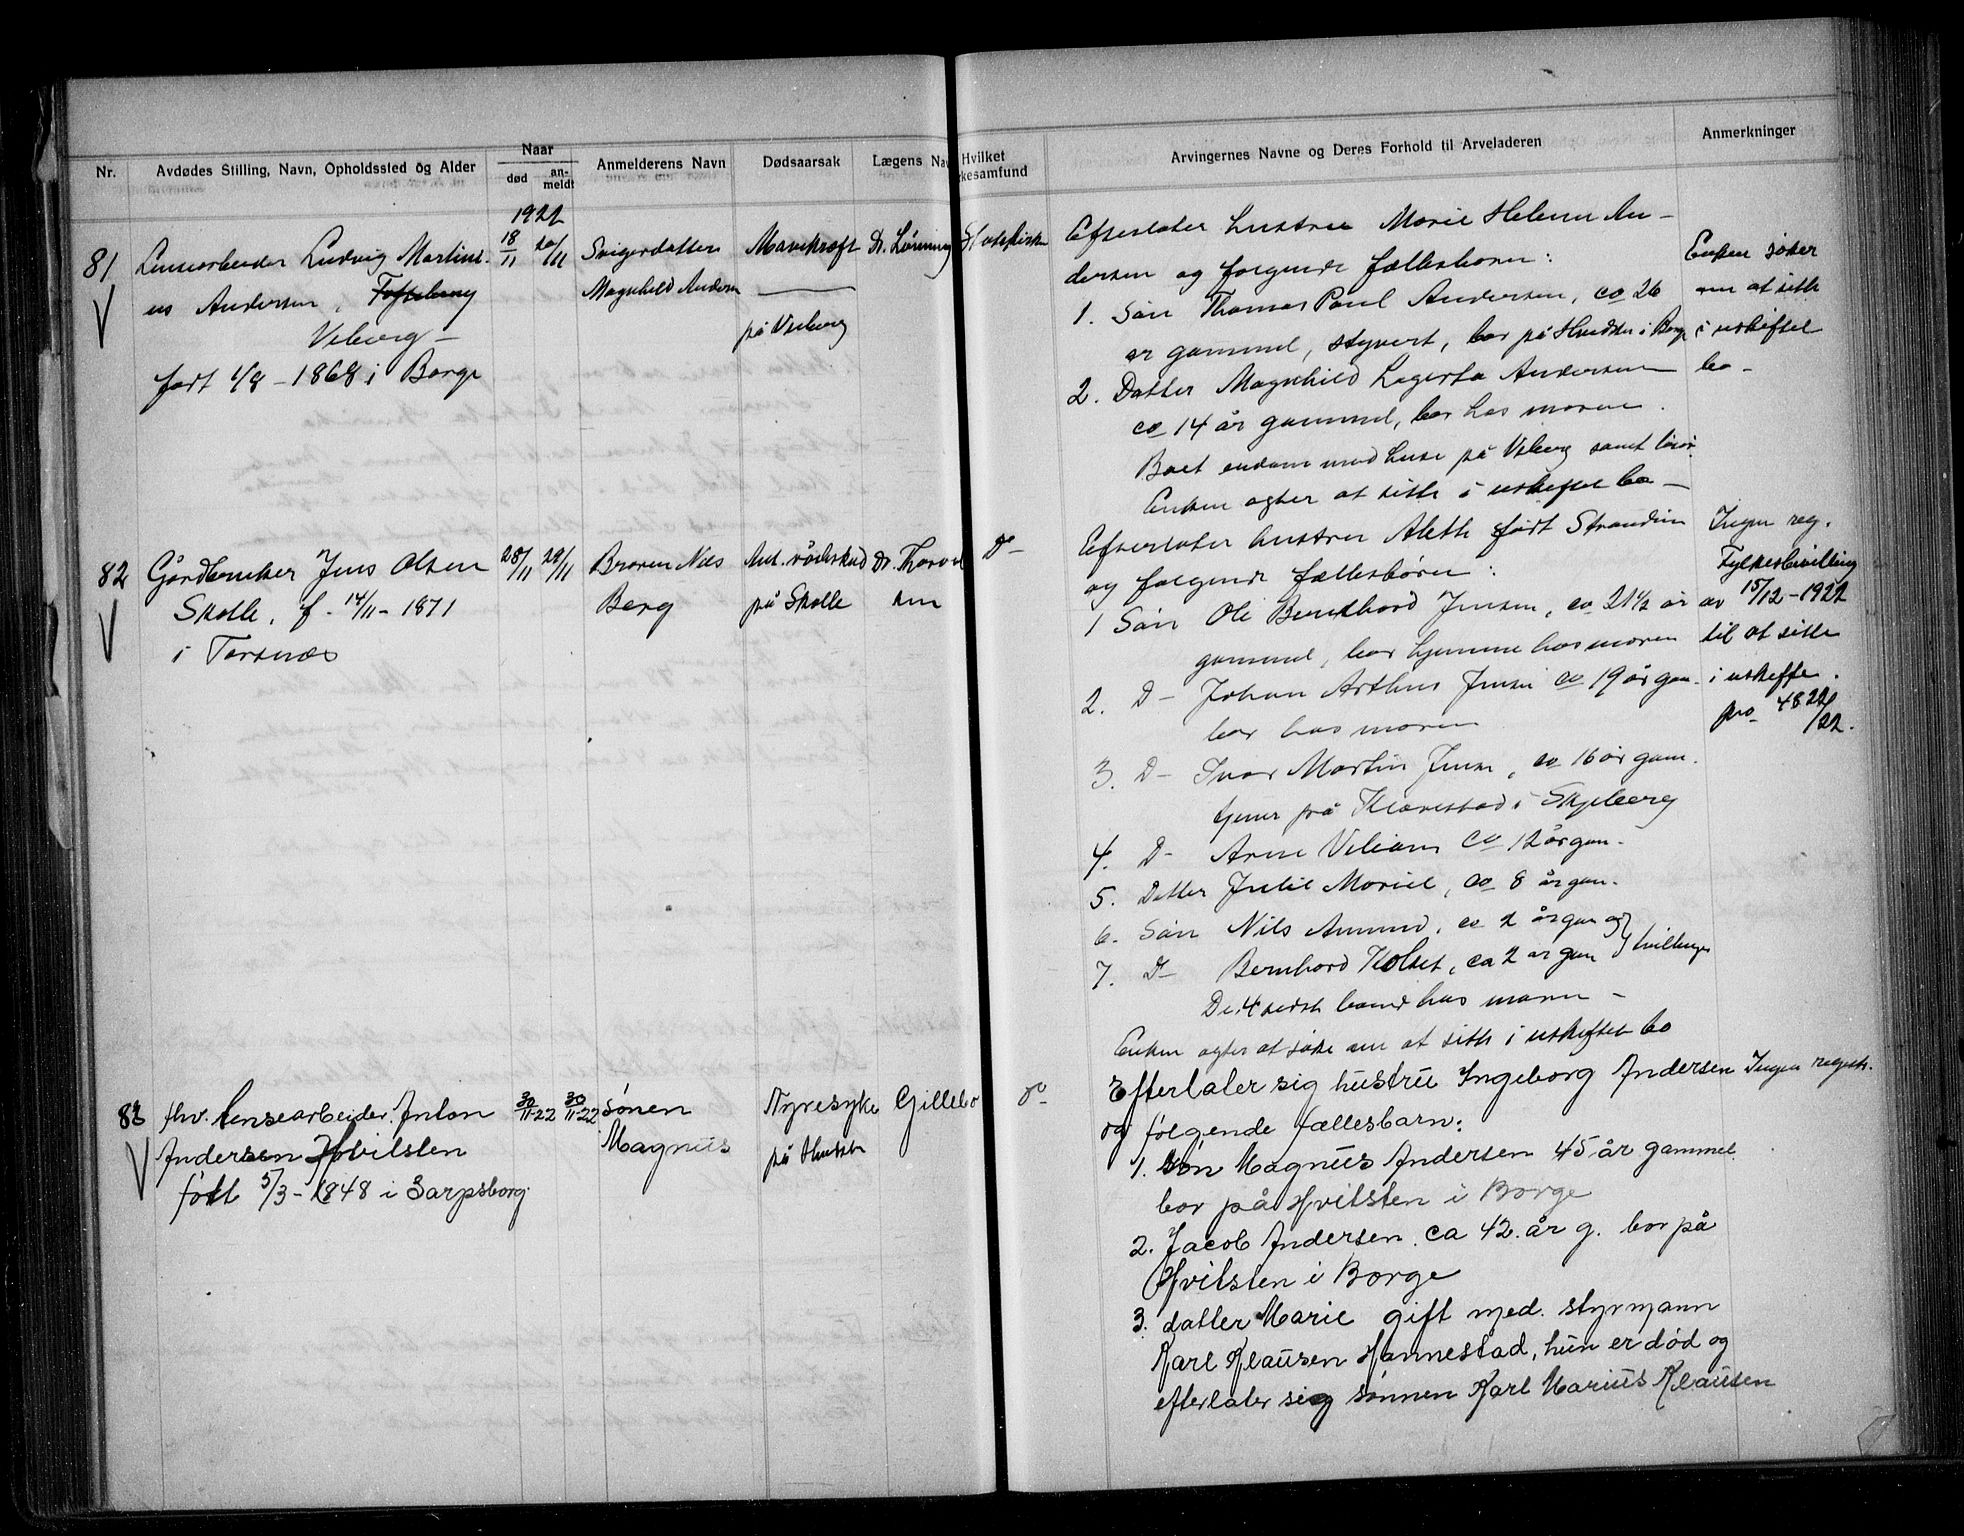 Nr.
Avdødes Stilling, Navn, Opholdssted og Alder
Naar
død
an-
meldt
Anmelderens Navn
Dødsaarsak
Lægens Nav
Hvilket
kesamfund
Arvingernes Navne og Deres Forhold til Arveladeren
Anmerkninger
1922
81
Lensearbeider Ludvig Martini-
us Andersen, Tofteberg
Viberg -
født 1/8 - 1868 i Borge
18/11
20/11
Svigerdatter
Magnhild Andersen
Mavekræft
på Viberg
Dr. Lønning
Statskirken
Efterlater hustru Marie Helene An-
dersen og følgende fællesbørn:
1. Søn Thomas Paul Andersen, ca 26
år gammel, styvert, bor på i Borge
2. Datter Magnhild Lagerta Andersen
ca 14 år gammel, bor hos moren.
Boet eiendom med huse på Viberg samt løsør.
Enken agter at sitte i uskiftet bo -
Enken søker
om at sitte
i uskiftet
bo -
82
Gårdbruker Jens Olsen
Skolle, f. 14/11 - 1871
i Torsnæs
28/11
29/11
Broren Nils
Berg
på Skolle
Dr. Thorvald
sen
Do -
Efterlater hustru Aleth født Strandin
og følgende fællesbørn:
1 Søn Ole Bernhard Jensen, ca 21 1/2 år
gammel, bor hjemme hos moren
2. D - Johan Arthur Jensen ca 19 år gam.
bor hos moren
3. D - Ivar Martin Jensen, ca 16 år gam.
tjener på i Skjeberg
4. D - Arne Viliam ca 12 år gam.
5. Datter Julie Marie, ca 8 år gam.
6. Søn Nils Amund, ca 2 år gam og
7. D - Bernhard Kolset, ca 2 år gam tvillinger
De 4 sidste barna hos moren -
Enken agter at søke om at sitte i uskiftet bo
Ingen reg.
Fylkesbevilling
av 15/12 - 1922
til at sitte
i uskifte.
pro 4822/22.
83
fhv. lensearbeider Anton
Andersen Hvilsten
født 5/3 - 1848 i Sarpsborg.
30/11-22
30/11-22
Sønen
Magnus
Nyresyke
på
Gillebo
Do -
Efterlater sig hustru Ingeborg Andersen
og følgende fællesbarn:
1. Søn Magnus Andersen 45 år gammel
bor på Hvilsten i Borge
2. Jacob Andersen. ca 42. år g. bor på
Hvilsten i Borge
3. datter Marie gift med. styrmann
Karl Klausen Hannestad, hun er død og
efterlater sig sønnen Karl Marius Klausen
Ingen registr.